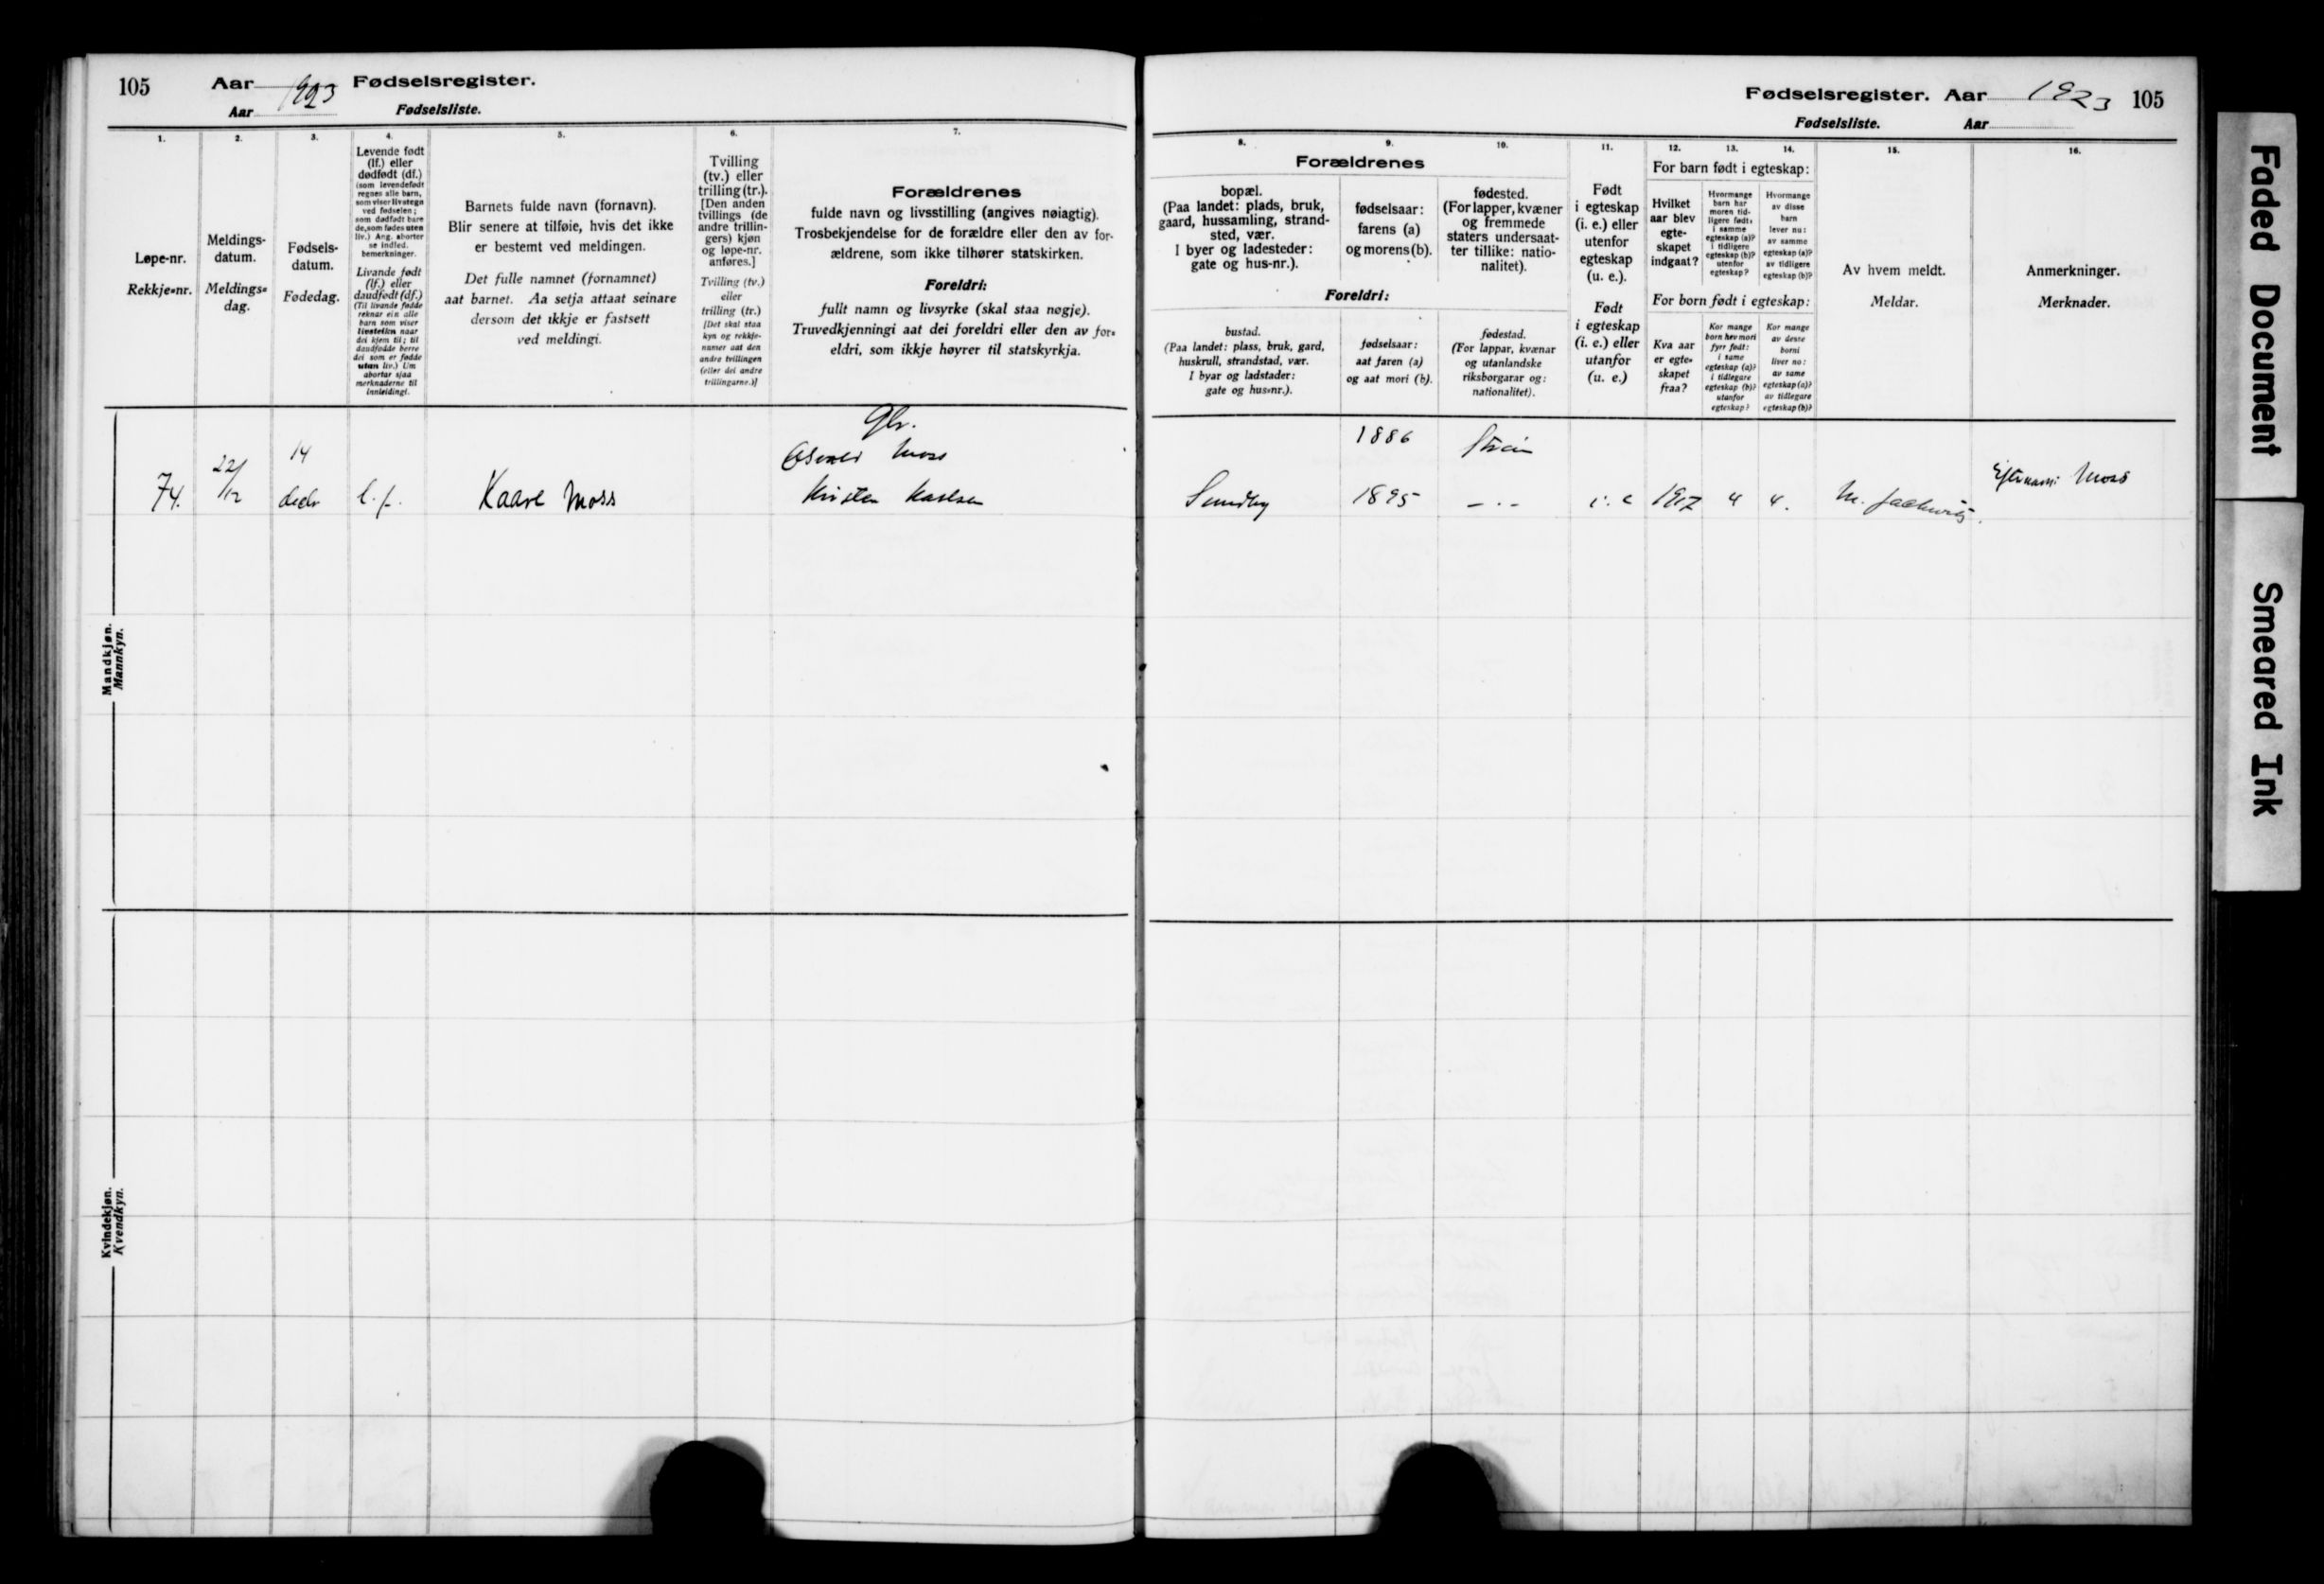 105
Aar 1923 Fødselsregister.
Aar Fødselsliste.
1. 2. 3. 4. 5. 6. 7.
Løpe-nr.
Rekkje=nr.
Meldings-
datum.
Meldings=
dag.
Fødsels-
datum.
Fødedag.
Levende født
(lf.) eller
dødfødt (df.)
(som levendefødt
regnes alle barn,
som viser livstegn
ved fødselen;
som dødfødt bare
de, som fødes uten
liv.) Ang. aborter
se indled.
bemerkninger.
Livande født
(lf.) eller
daudfødt (df.)
(Til livande fødde
reknar ein alle
barn som viser
livsteikn naar
dei kjem til; til
daudfødde berre
dei som er fødde
utan liv.) Um
abortar sjaa
merknaderne til
innleidingi.
Barnets fulde navn (fornavn).
Blir senere at tilføie, hvis det ikke
er bestemt ved meldingen.
Det fulle namnet (fornamnet)
aat barnet. Aa setja attaat seinare
dersom det ikkje er fastsett
ved meldingi.
Tvilling
(tv.) eller
trilling (tr.).
[Den anden
tvillings (de
andre trillin-
gers) kjøn
og løpe-nr.
anføres.]
Tvilling (tv.)
eller
trilling (tr.)
[Det skal staa
kyn og rekkje-
numer aat den
andre tvillingen
(eller dei andre
trillingarne.)]
Forældrenes
fulde navn og livsstilling (angives nøiagtig).
Trosbekjendelse for de forældre eller den av for-
ældrene, som ikke tilhører statskirken.
Foreldri:
fullt namn og livsyrke (skal staa nøgje).
Truvedkjenningi aat dei foreldri eller den av for=
eldri, som ikkje høyrer til statskyrkja.
Mandkjøn.
Mannkyn.
74.
22/12
14
decbr
l.f.
Kaare Moss
Gbr.
Moss
Kristen Karlsen
Kvindekjøn.
Kvendkyn.
Fødselsregister. Aar 1923 105
Fødselsliste. Aar
8. 9. 10. 11. 12. 13. 14. 15. 16.
Forældrenes
bopæl.
(Paa landet: plads, bruk,
gaard, hussamling, strand-
sted, vær.
I byer og ladesteder:
gate og hus-nr.).
fødselsaar:
farens (a)
og morens (b).
fødested.
(For lapper, kvæner
og fremmede
staters undersaat-
ter tillike: natio-
nalitet).
Foreldri:
bustad.
(Paa landet: plass, bruk, gard,
huskrull, strandstad, vær.
I byar og ladstader:
gate og hus=nr.).
fødselsaar:
aat faren (a)
og aat mori (b).
fødestad.
(For lappar, kvænar
og utanlandske
riksborgarar og:
nationalitet).
Født
i egteskap
(i. e.) eller
utenfor
egteskap
(u. e.).
Født
i egteskap
(i. e.) eller
utanfor
(u. e.)
For barn født i egteskap:
Hvilket
aar blev
egte-
skapet
indgaat?
Hvormange
barn har
moren tid-
ligere født:
i samme
egteskap (a)?
i tidligere
egteskap (b)?
utenfor
egteskap?
Hvormange
av disse
barn
lever nu:
av samme
egteskap (a)?
av tidligere
egteskap (b)?
For born født i egteskap:
Kva aar
er egte=
skapet
fraa?
Kor mange
born hev mori
fyrr født:
i same
egteskap (a)?
i tidlegare
egteskap (b)?
utanfor
egteskap?
Kor mange
av desse
borni
liver no:
av same
egteskap (a)?
av tidlegare
egteskap (b)?
Av hvem meldt.
Meldar.
Anmerkninger.
Merknader.
1886
Sundby 1895 — · — i. e 1917 4 4.
Efternavn: Moss
Faded Document
Smeared Ink